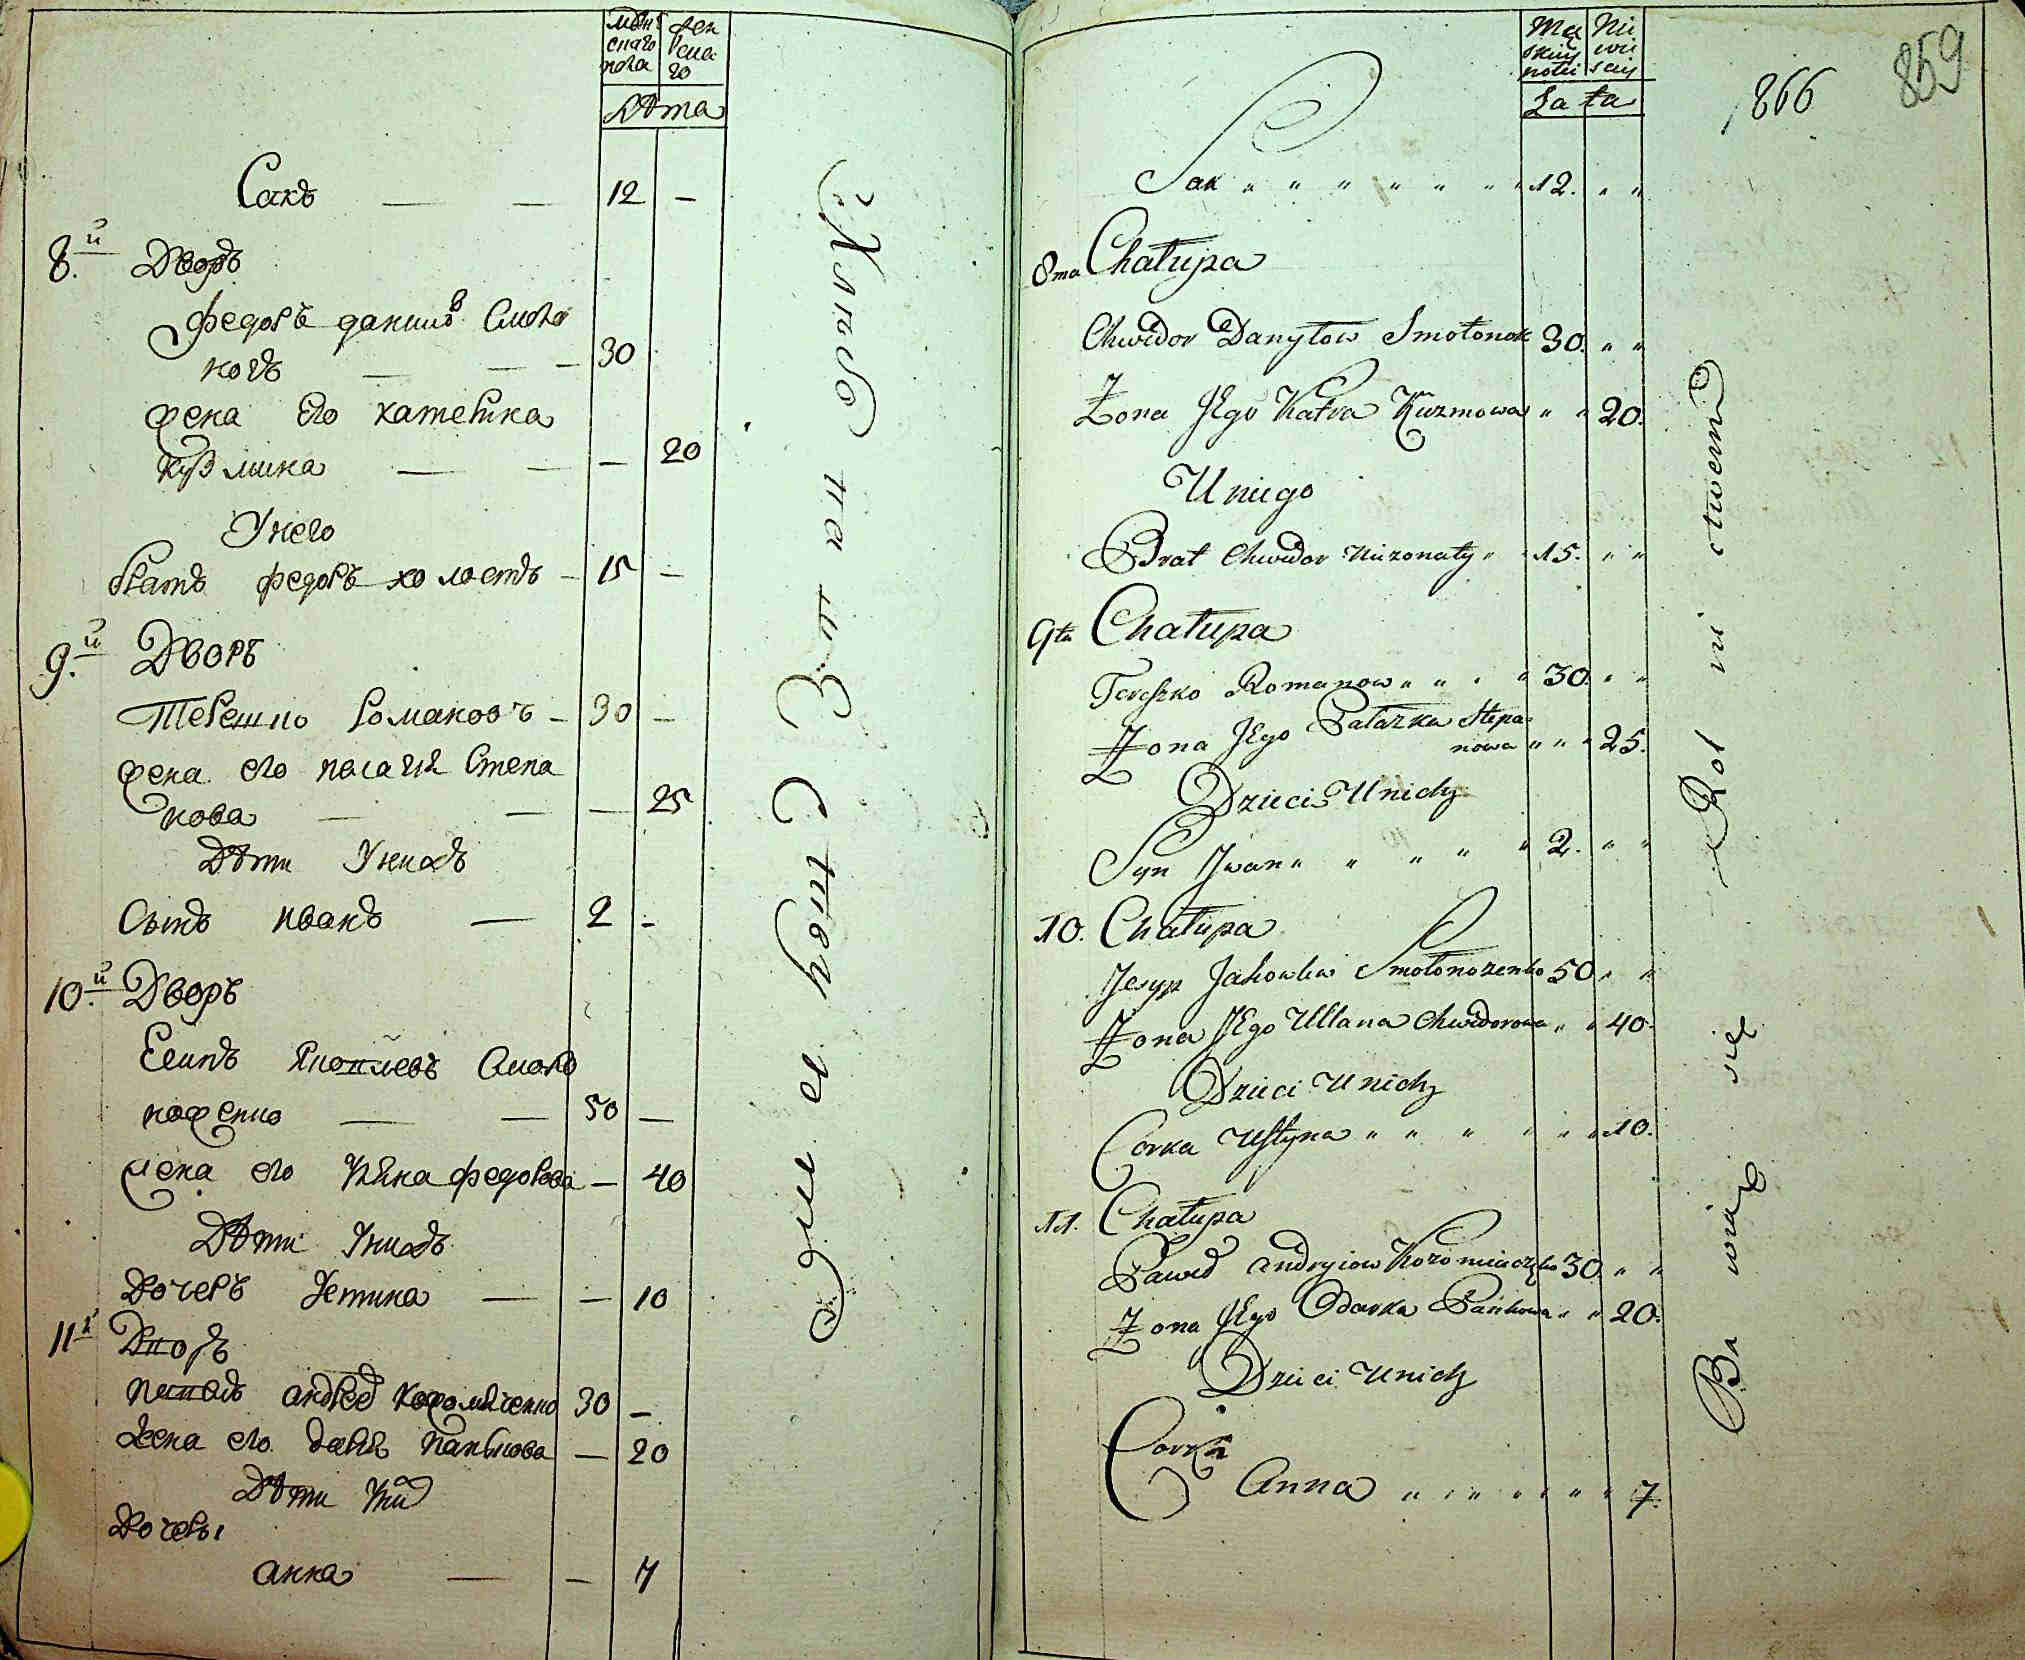 мужескаго пола
женскаго
Лѣта
Сакъ — — 12 —
8.й Дворъ
Федоръ данилов Смоло
ногъ — — — 30
жена его катерина
кузмина — — — 20
Унего
братъ федоръ холостъ — 15 —
9.й Дворъ
Терешко романовъ — 30 —
жена его палагия Степа
нова — — — 25
Дѣти Унихъ
Сынъ иванъ — 2 —
10.й Дворъ
Есипъ яковлевъ Смоло
ноженко — — 50 —
жена его Уляна федорова — 40
Дѣти Унихъ
Дочеръ Устина — — 10
11й Дворъ
павелъ андреев Кожомяченко 30 —
жена его дарья панкова — 20
Дѣти Уни
Дочеры
анна — — 7
Хлѣбопашествуют
Męskiey płci
Niewieściey
Lata
Sak " " " " " " 12. " "
8ma Chałupa
Chwedor Danyłow Smołonoh 30. " "
Żona Jego Katra Kuzmowa " " 20.
U niego
Brat Chwedor nieżonaty " " 15. " "
9ta Chałupa
Tereszko Romanow " " " " 30. " "
Żona Jego Pałazka Stepa
nowa " " " 25.
Dzieci Unich
Syn Iwan " " " " " 2. " "
10. Chałupa
Jesyp Jakowlew Smołonozenko 50 " "
Żona Jego Ullana Chwedorowa " " 40.
Dzieci Unich
Corka Ustyna " " " " " " 10.
11. Chałupa
Paweł Andryiow Kozomiaczenko 30. " "
Żona Jego Odarka Pańkowa " " 20.
Dzieci Unich
Corka
Anna " " " " " " 7.
Bawią się Rolnictwem
1866
859